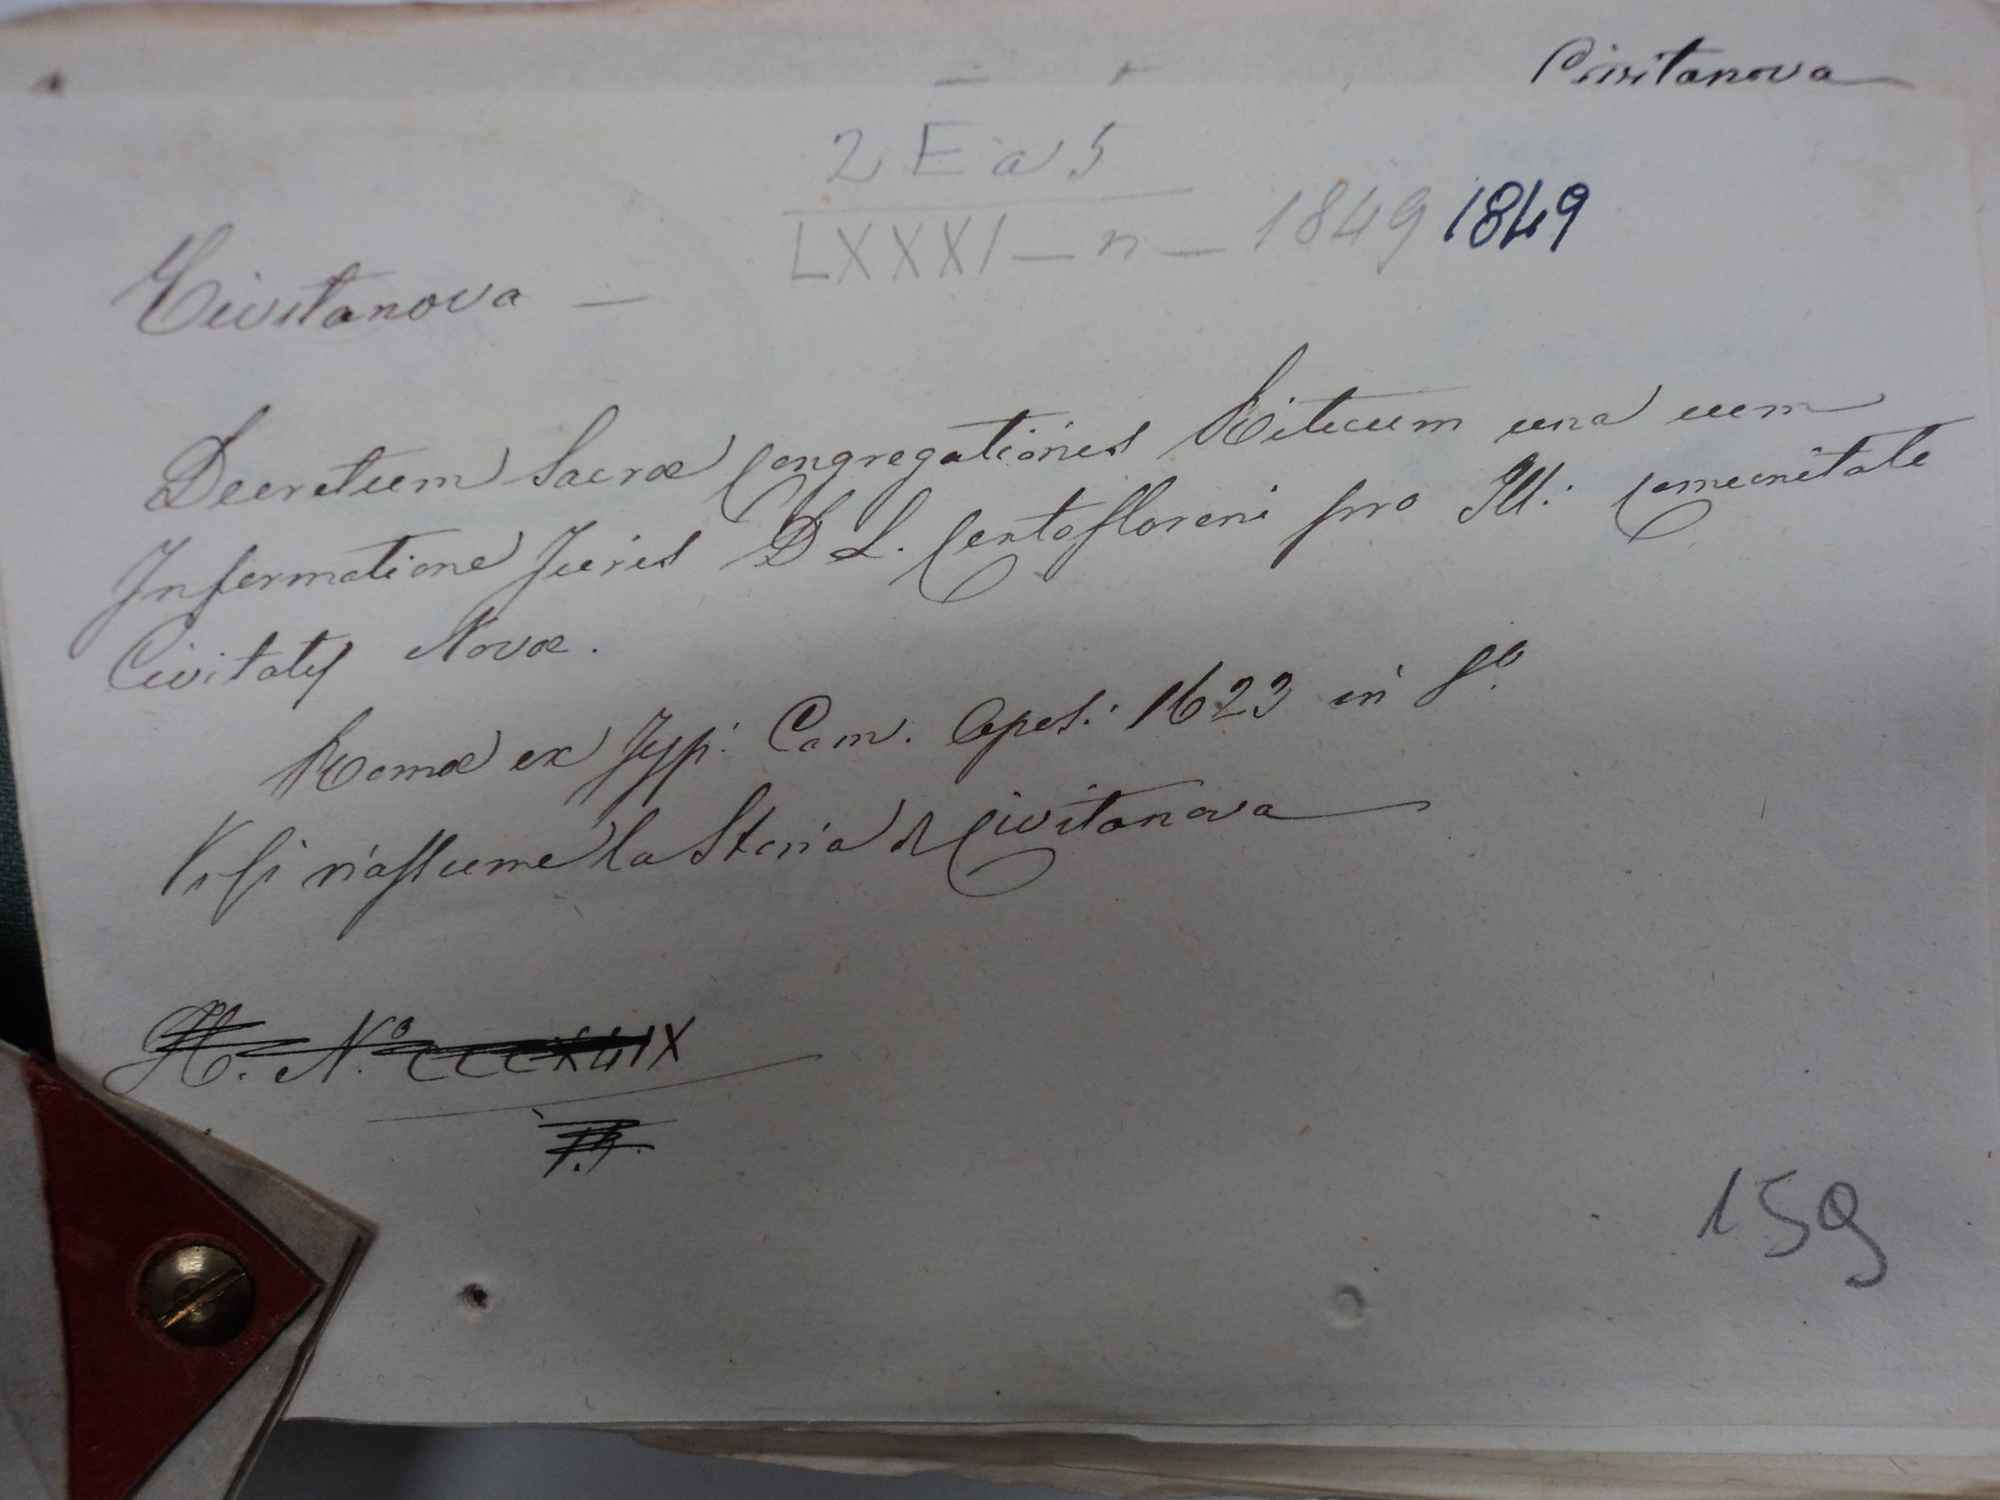 Civitanova
2 E a 5
LXXXI - n - 1849 1849
Civitanova -
Decretum Sacræ Congregationis Rituum una cum
Informatione Juris D L. Centofloreni pro Ill: Comunitate
Civitatis Novæ.
Romæ ex Typ: Cam. Apos: 1623 in f.º
Vi si riassume la Storia di Civitanova
H. Nº CCCXLIX
159